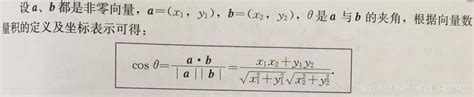 设a、b都是非零向量，a=(x₁，y₁)，b=(x₂，y₂)，θ是a与b的夹角，根据向量数
量积的定义及坐标表示可得：
cos θ= a·b / |a||b| = x₁x₂+y₁y₂ / √x₁²+y₁² √x₂²+y₂² .